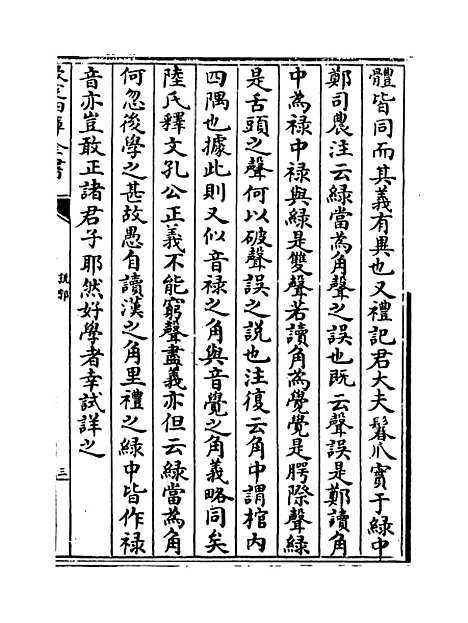 體皆同而其義有異也又禮記君大夫鬊爪實于緑中
鄭司農注云緑當為角聲之誤也既云聲誤是鄭讀角
中為禄中禄與緑是雙聲若讀角為覺覺是腭際聲緑
是舌頭之聲何以破聲誤之説也注復云角中謂棺内
四隅也據此則又似音禄之角與音覺之角義略同矣
陸氏釋文孔公正義不能窮聲盡義亦但云緑當為角
何忽後學之甚故愚自讀漢之角里禮之緑中皆作禄
音亦豈敢正諸君子耶然好學者幸試詳之
欽定四庫全書
說郛
三